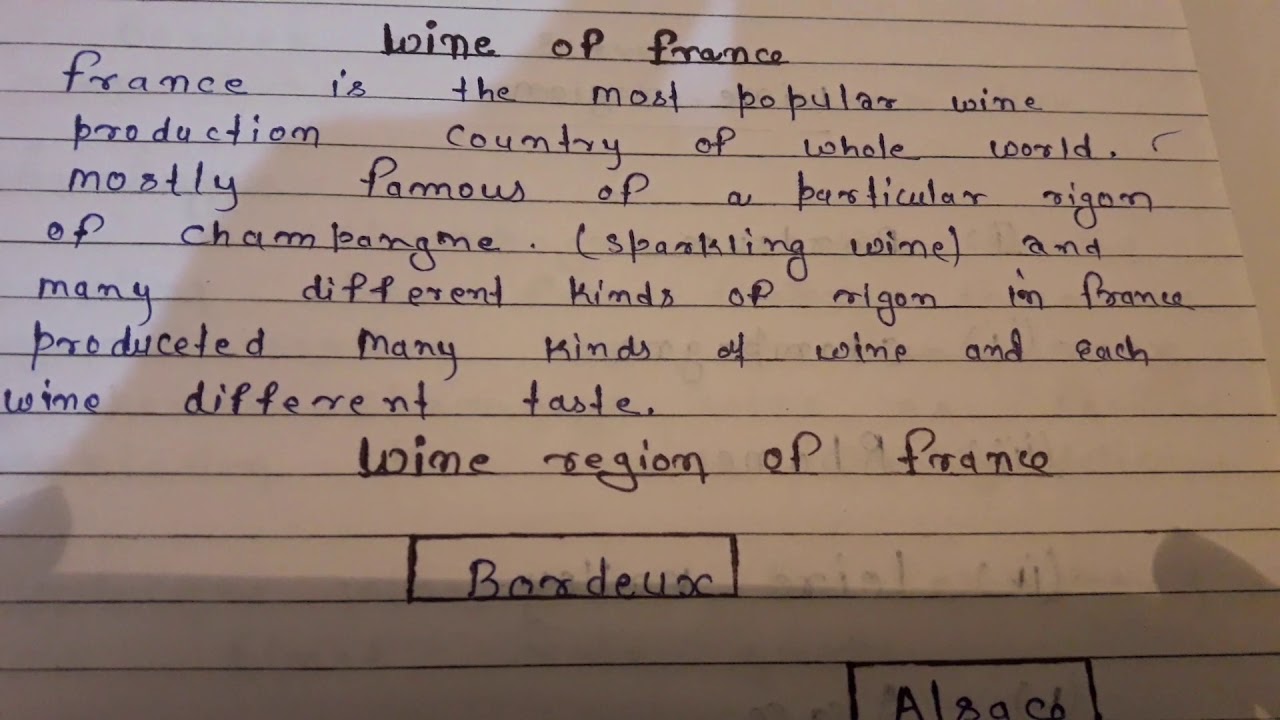 Wine of france
france is the most popular wine
production country of whole world. (
mostly famous of a particular rigon
of champangne. (sparkling wine) and
many different kinds of rigon in france
produceted many kinds of wine and each
wine different taste.
Wine region of france
Bordeux
Alsace